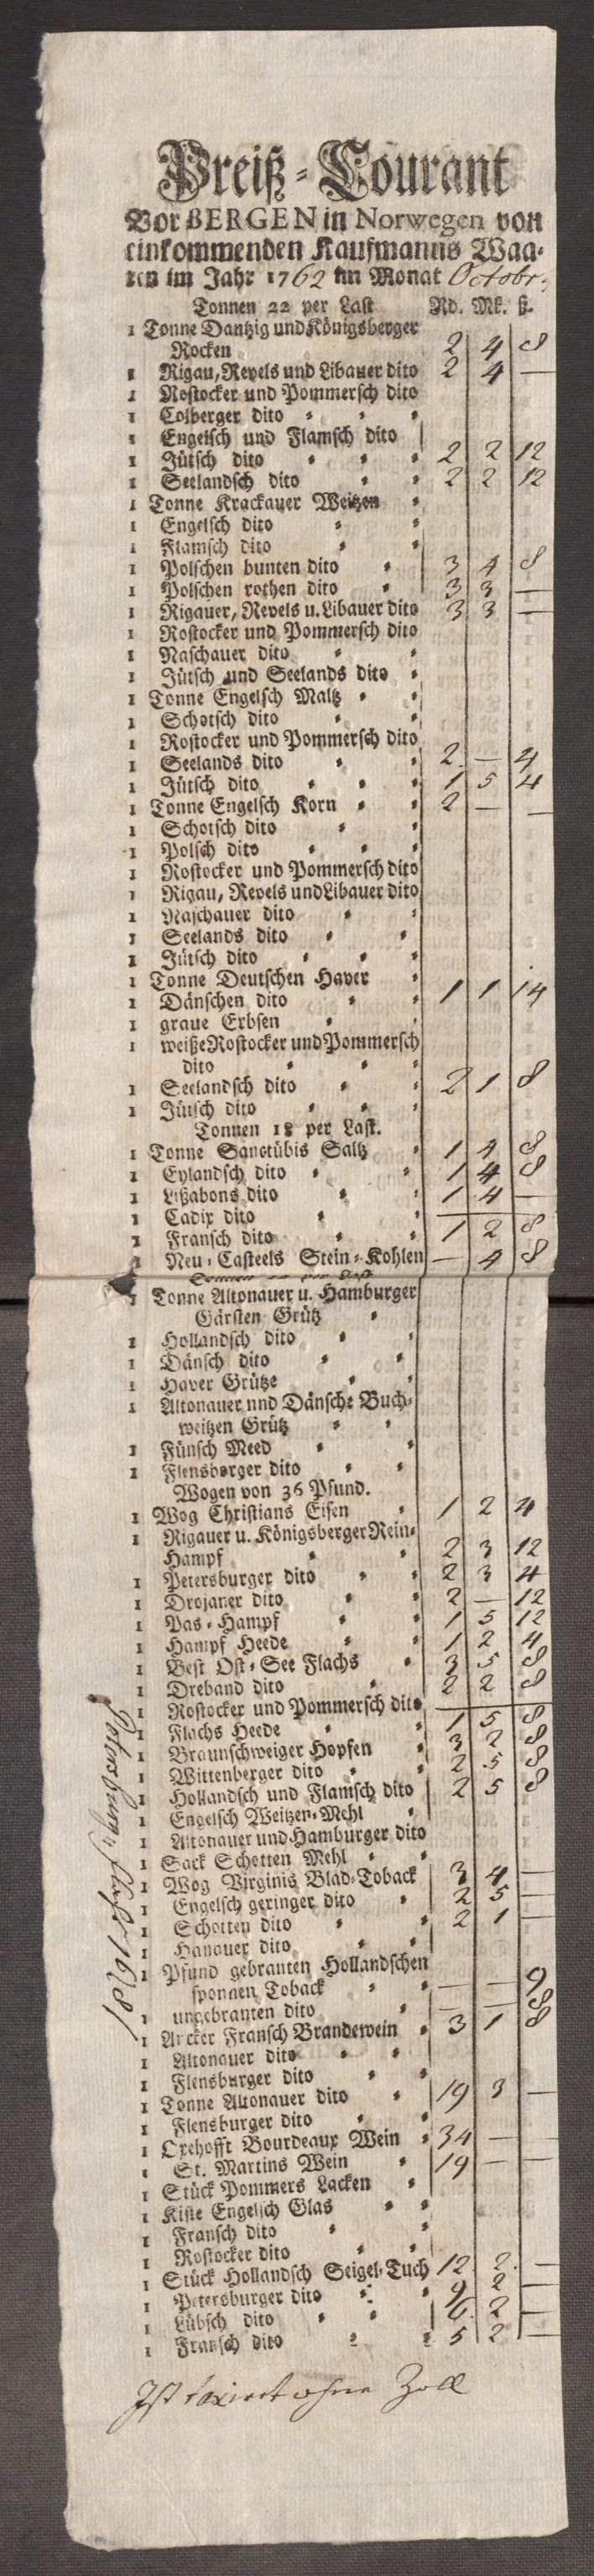 Preiß-Courant
Vor BERGEN in Norwegen von
einkommenden Kaufmanns Waa-
ren im Jahr 1762 im Monat Octobr:
Tonnen 22 per Last Rd. Mk. ß.
1 Tonne Dantzig und Königsberger
Rocken 2 4 8
1 Rigau, Revels und Libauer dito 2 4 —
1 Rostocker und Pommersch dito
1 Colberger dito
1 Engelsch und Flamsch dito
1 Jütsch dito 2 2 12
1 Seelandsch dito 2 2 12
1 Tonne Krackauer Weitzen
1 Engelsch dito
1 Flamsch dito
1 Polschen bunten dito 3 4 8
1 Polschen rothen dito 3 3 —
1 Rigauer, Revels u. Libauer dito 3 3 —
1 Rostocker und Pommersch dito
1 Naschauer dito
1 Jütsch und Seelands dito
1 Tonne Engelsch Maltz
1 Schotsch dito
1 Rostocker und Pommersch dito
1 Seelands dito 2 — 4
1 Jütsch dito 1 5 4
1 Tonne Engelsch Korn 2 — —
1 Schotsch dito
1 Polsch dito
1 Rostocker und Pommersch dito
1 Rigau, Revels und Libauer dito
1 Naschauer dito
1 Seelands dito
1 Jütsch dito
1 Tonne Deutschen Haver
1 Dänschen dito 1 1 14
1 graue Erbsen
1 weiße Rostocker und Pommersch
dito
1 Seelandsch dito 2 1 8
1 Jütsch dito
Tonnen 18 per Last.
1 Tonne Sanctübis Saltz 1 4 8
1 Eylandsch dito 1 4 8
1 Lißabons dito 1 4 —
1 Cadix dito —
1 Fransch dito 1 2 8
1 Neu-Casteels Stein-Kohlen — 4 8
1 Tonne Altonauer u. Hamburger
Gärsten Grütz
1 Hollandsch dito
1 Dänsch dito
1 Haver Grütze
1 Altonauer nnd Dänsche Buch-
weitzen Grütz
1 Fünsch Meed
1 Flensborger dito
Wogen von 36 Pfund.
1 Wog Christians Eisen 1 2 4
1 Rigauer u. Königsberger Rein-
Hampf 2 3 12
1 Petersburger dito 2 3 4
1 Drojaner dito 2 — 12
1 Pas-Hampf 1 5 12
1 Hampf Heede 1 2 4
1 Best Ost-See Flachs 3 5 8
1 Dreband dito 2 2 8
1 Rostocker und Pommersch dito —
1 Flachs Heede 1 5 8
1 Braunschweiger Hopfen 3 2 8
1 Wittenberger dito 2 5 8
1 Hollandsch und Flamsch dito 2 5 8
1 Engelsch Weitzen-Mehl
1 Altonauer und Hamburger dito
1 Sack Schotten Mehl
1 Wog Virginis Blad-Toback 3 4 —
1 Engelsch geringer dito 2 5 —
1 Schotten dito 2 1 —
1 Hanauer dito
1 Pfund gebranten Hollandschen
sponnen Toback — — 9
1 ungebranten dito — — 8
1 Ancker Fransch Brandewein 3 1 8
1 Altonauer dito
1 Flensburger dito
1 Tonne Altonauer dito 19 3 —
1 Flensburger dito
1 Oxehofft Bourdeaux Wein 34 — —
1 St. Martins Wein 19 — —
1 Stück Pommers Lacken
1 Kiste Engelsch Glas
1 Fransch dito
1 Rostocker dito
1 Stück Hollandsch Seigel-Tuch 12 2 —
1 Petersburger dito 9 2 —
1 Lübsch dito 6 2 —
1 Fransch dito 5 2 —
Ist taxiret ohne Zoll